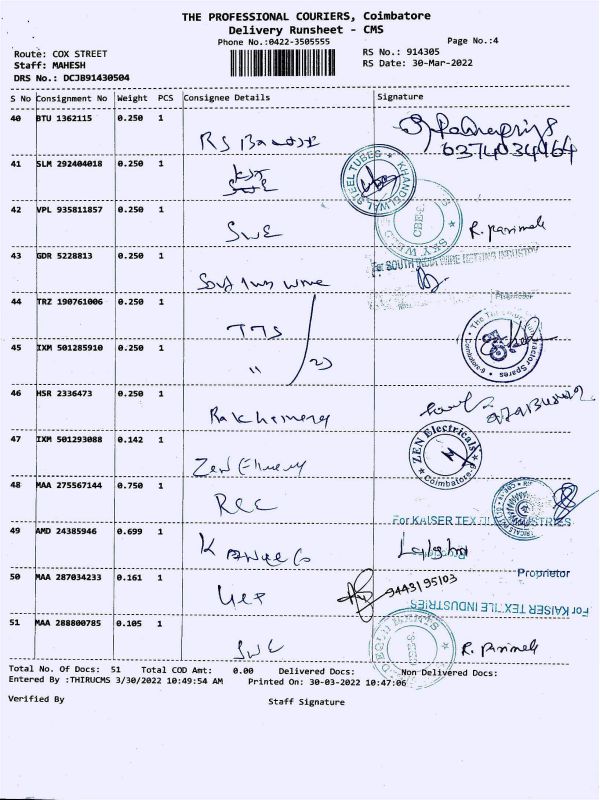 THE PROFESSIONAL COURIERS, Coimbatore
Delivery Runsheet - CMS
Phone No.:0422-3505555 Page No.:4
Route: COX STREET RS No.: 914305
Staff: MAHESH RS Date: 30-Mar-2022
DRS No.: DCJB91430504
S No Consignment No Weight PCS Consignee Details Signature
40 BTU 1362115 0.250 1
6374034464
41 SLM 292404018 0.250 1
KHANDELWAL STEEL TUBES
42 VPL 935811857 0.250 1 SWE R. Parimala
43 GDR 5228813 0.250 1 For SOUTH INDIA WIRE NETTING INDUSTRY
South India Wire
Proprietor
44 TRZ 190761006 0.250 1 TTS
45 IXM 501285910 0.250 1 "
Tractor Spares
Coimbatore-9
46 HSR 2336473 0.250 1
47 IXM 501293088 0.142 1 Zen
ZEN Electricals
Coimbatore-9
48 MAA 275567144 0.750 1 REC
For KAISER TEXTILE INDUSTRIES
49 AMD 24385946 0.699 1
Proprietor
50 MAA 287034233 0.161 1 9443195103
For KAISER TEXTILE INDUSTRIES
51 MAA 288800785 0.105 1 R. Parimala
Total No. Of Docs: 51 Total COD Amt: 0.00 Delivered Docs: Non Delivered Docs:
Entered By :THIRUCMS 3/30/2022 10:49:54 AM Printed On: 30-03-2022 10:47:06
Verified By Staff Signature